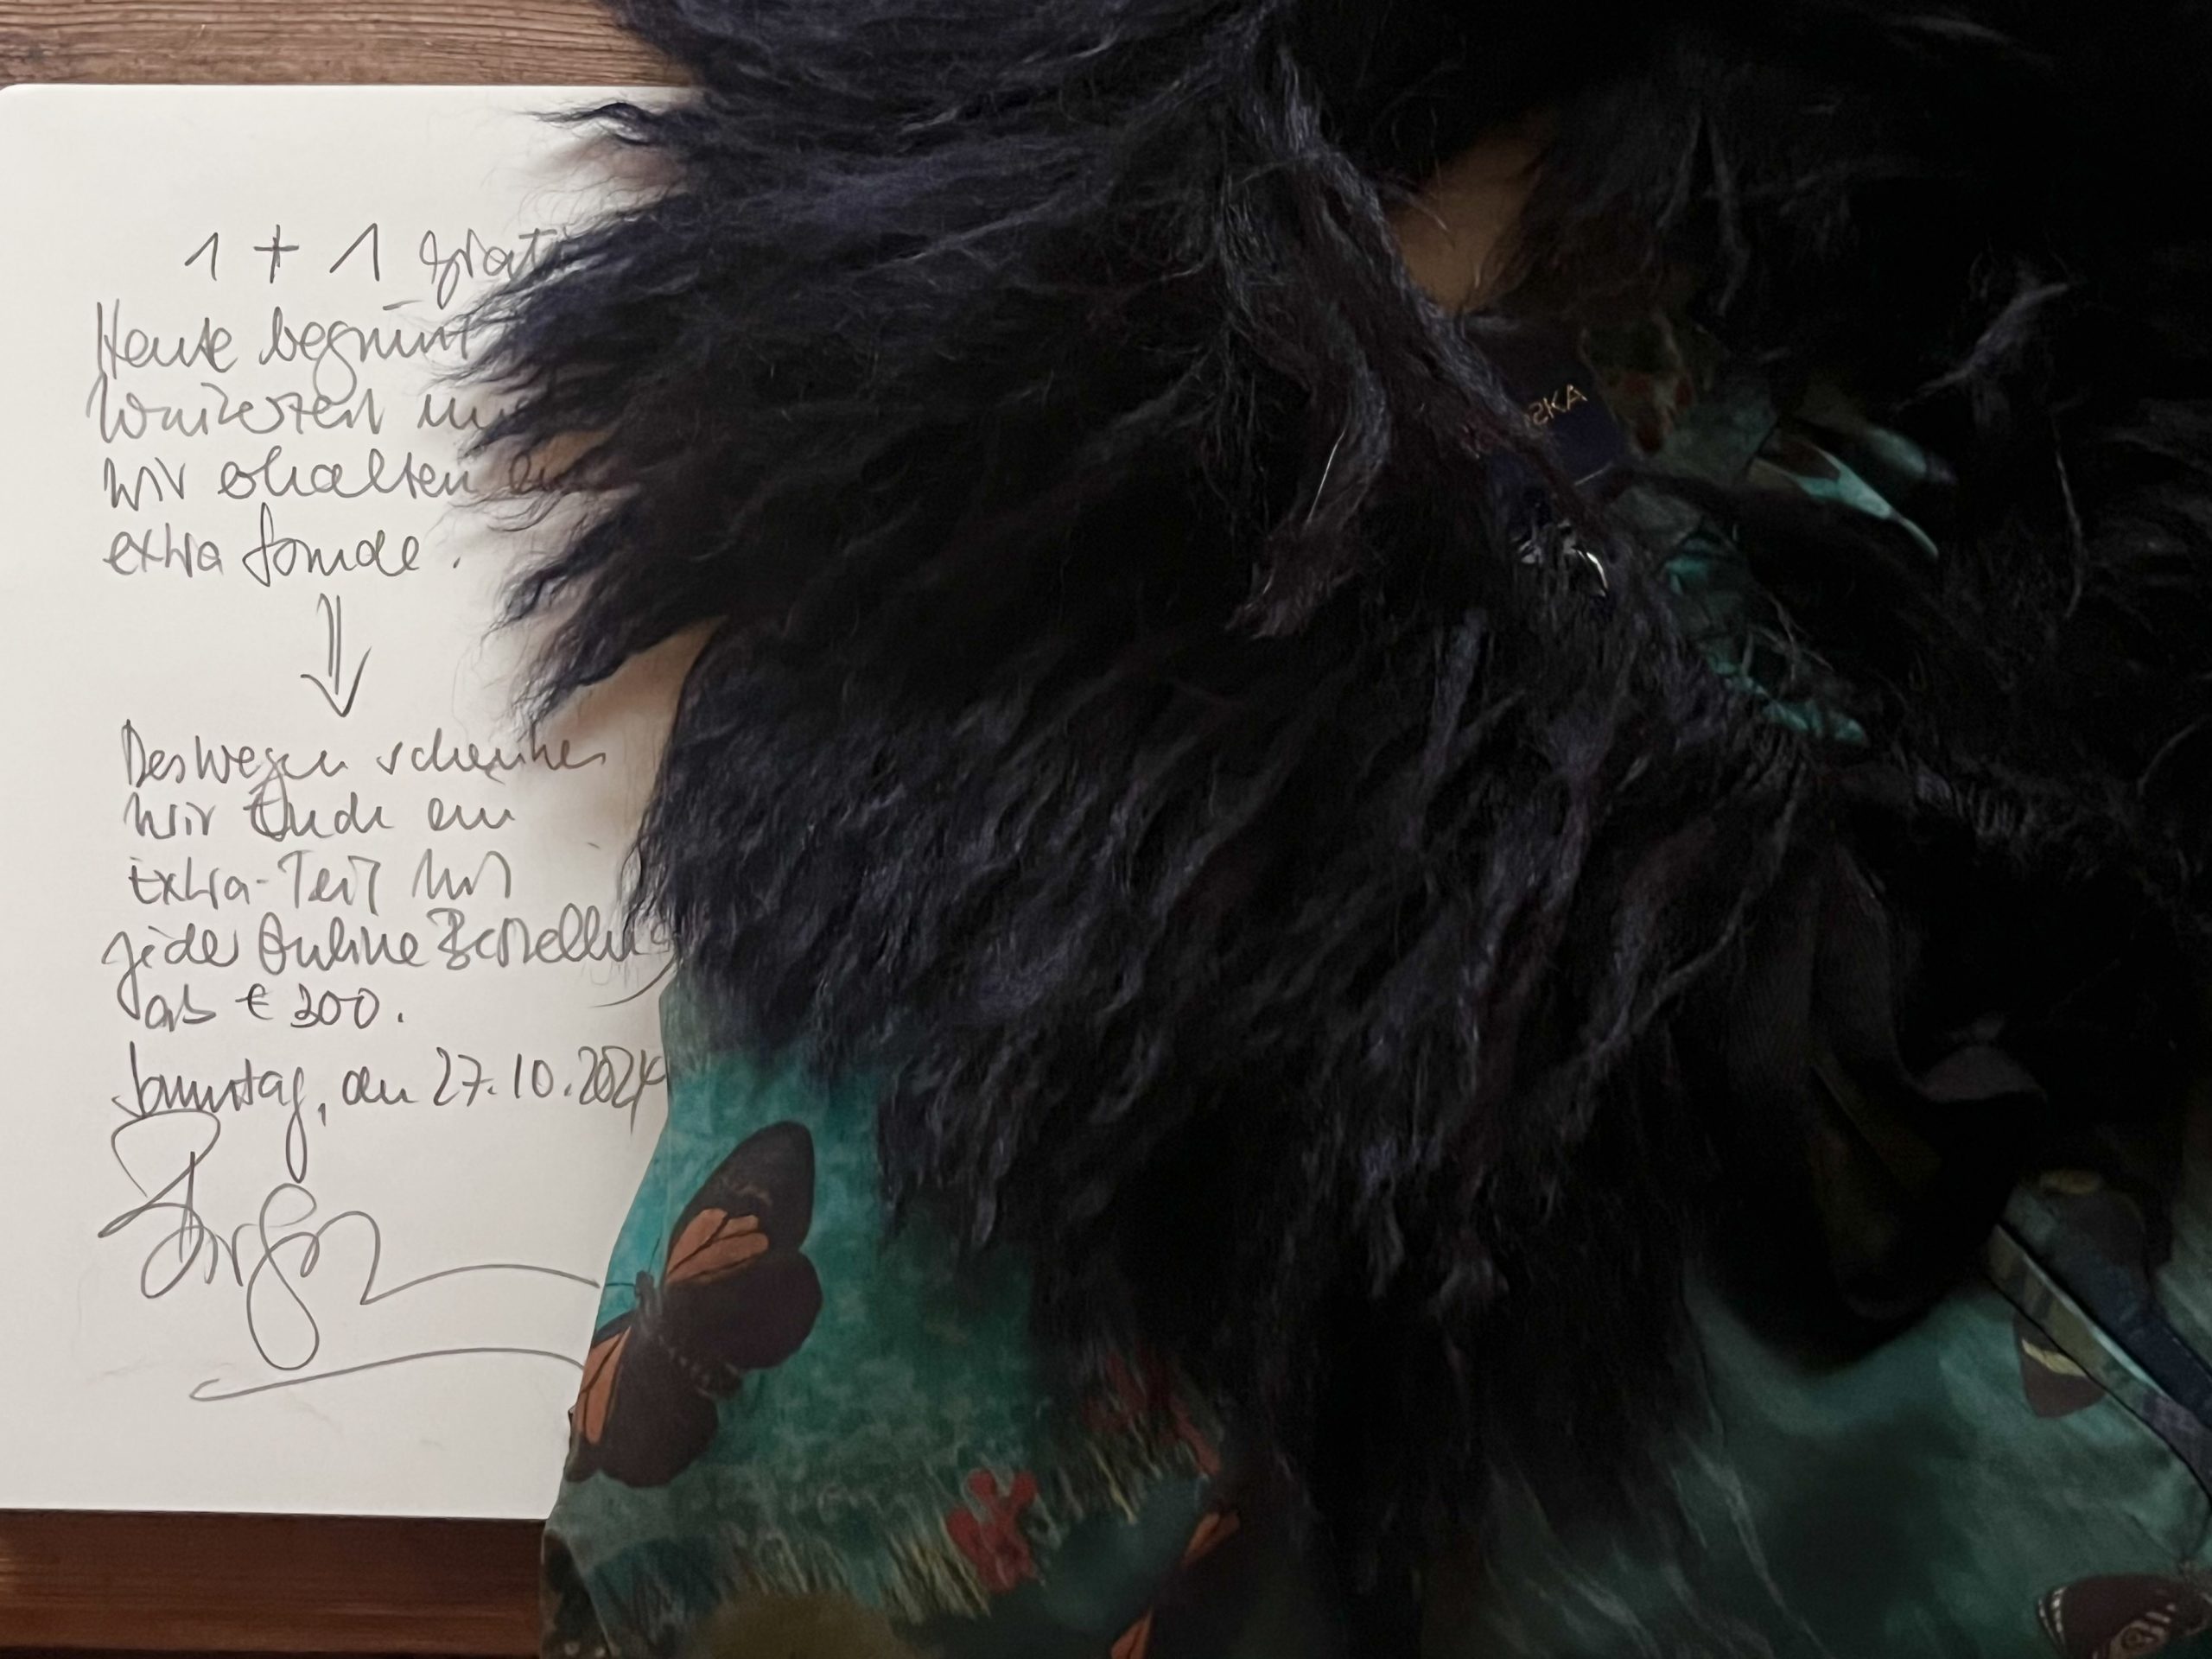 1 + 1 grati
Heute beginnt
Winterzeit un
wir erhalten ein
extra Stunde.
Deswegen schenken
wir Ende ein
Extra-Teil mit
jeder Online Bestellung
ab € 300.
Sonntag, den 27.10.2024
SKA